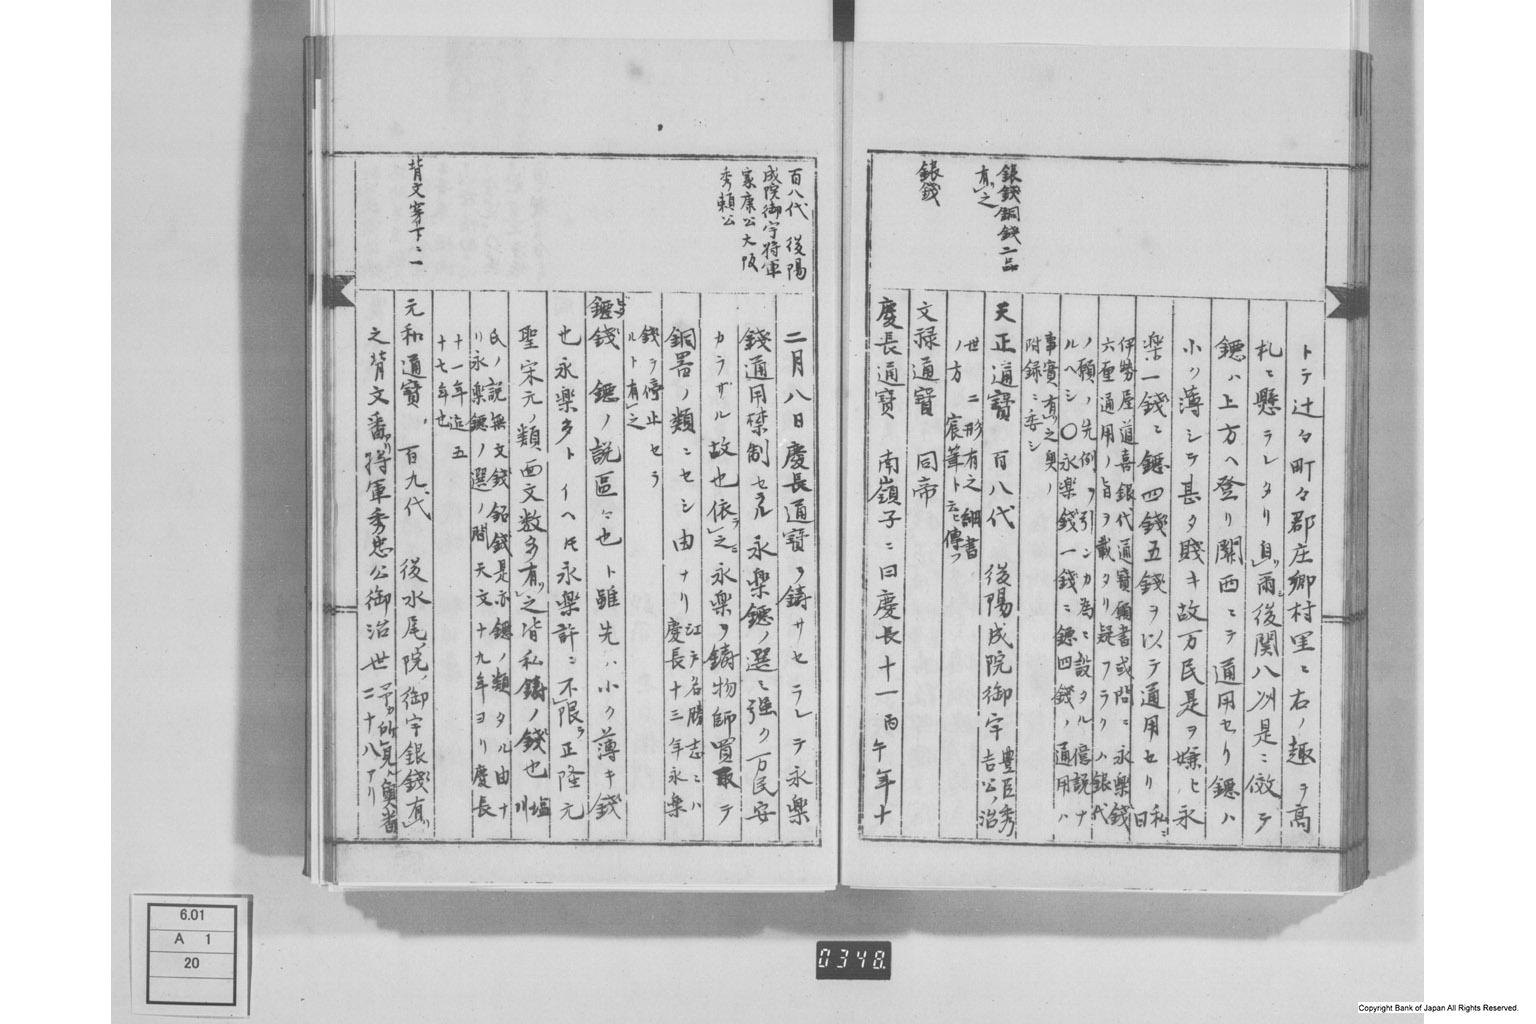 銀銭銅銭二品
有之
銀銭
トテ辻々町々郡庄郷村里ニ右ノ趣ヲ高
札ニ懸ラレタリ自爾後関八州是ニ倣テ
鐚ハ上方ヘ登リ關西ニテ通用セリ鐚ハ
小ク薄シテ甚タ賎キ故万民是ヲ嫌ヒ永
楽一銭ニ鐚四銭五銭ヲ以テ通用セリ私ニ曰
伊勢屋道喜銀代通寳獨書或問ニ永楽銭
六重通用ノ旨ヲ載タリ疑フラクハ銀代
ノ願ノ先例ヲ引ンカ為ニ設タル信説ナ
ルヘシ〇永楽銭一銭ニ鐚四銭ノ通用ハ
事實有之奥ノ
附録ニ委シ
天正通寳 百八代 後陽成院御宇 豊臣秀吉公ノ治
世 二形有之細書
ノ方 宸筆ト云ヒ傳フ
文禄通寳 同帝
慶長通寳 南嶺子ニ曰慶長十一丙午年十
百八代 後陽
成院御宇将軍
家康公大阪
秀頼公
背文穿下ニ一
二月八日慶長通寳ヲ鋳サセラレテ永楽
銭通用禁制セラル永楽鐚ノ選ニ強ク万民安
カラザル故也依之永楽ヲ鋳物師買取テ
銅器ノ類ニセシ由ナリ江戸名勝志ニハ慶長十三年永楽
銭ヲ停止セラ
ルト有之
鐚銭 鐚ノ説區々也ト雖先ハ小ク薄キ銭
也永楽多トイヘトモ永楽許ニ不限正隆元
聖宋元ノ類西文数多有之皆私鋳ノ銭也 塩川
氏ノ説無文銭鉛銭是亦鐚ノ類タル由ナ
リ永楽鐚ノ選ノ間天文十九年ヨリ慶長
十一年迄五
十七年也
元和通寳 百九代 後水尾院御宇銀銭有
之背文番 将軍秀忠公御治世 予カ所見ハ負番二十八アリ
6.01
A 1
20
0348
Copyright Bank of Japan All Rights Reserved.